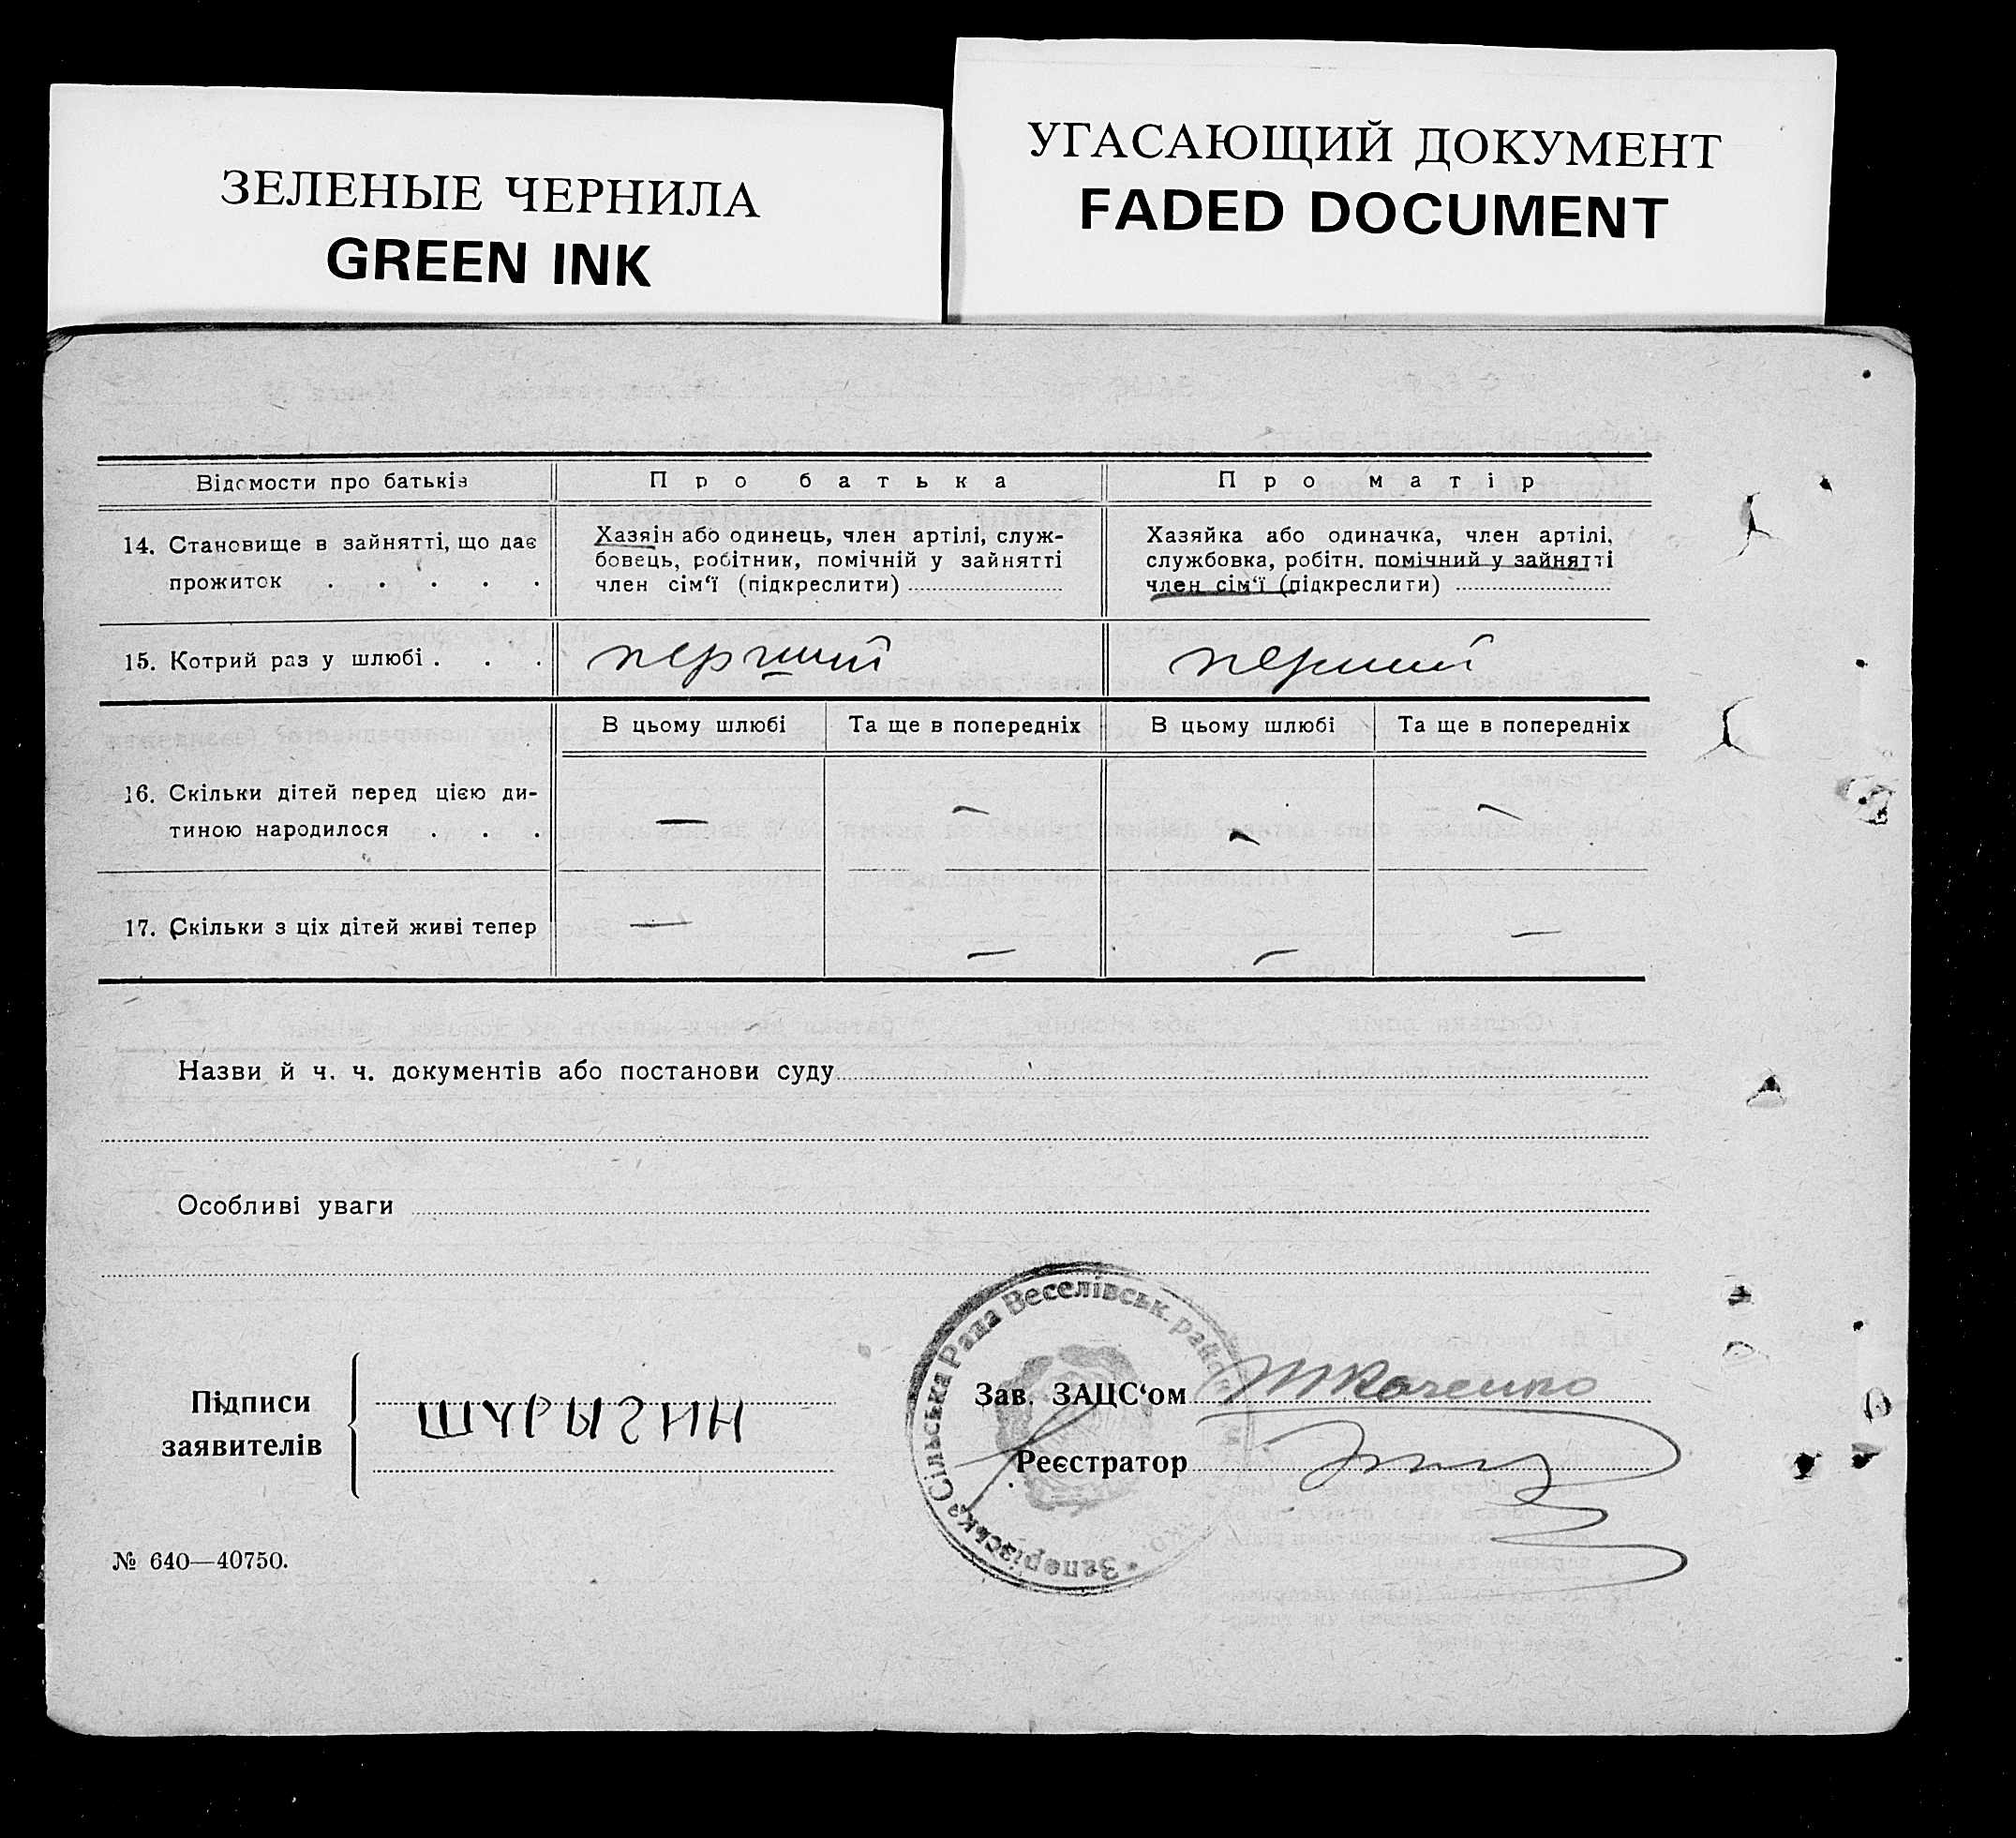 ЗЕЛЕНЫЕ ЧЕРНИЛА
GREEN INK
УГАСАЮЩИЙ ДОКУМЕНТ
FADED DOCUMENT
Відомости про батьків
Про батька
Про матір
14. Становище в зайнятті, що дає
прожиток . . . . .
Хазяін або одинець, член артілі, служ-
бовець, робітник, помічній у зайнятті
член сім‘ї (підкреслити)
Хазяйка або одиначка, член артілі,
службовка, робітн. помічний у зайнятті
член сім‘ї (підкреслити)
15. Котрий раз у шлюбі . . .
перший
перший
В цьому шлюбі
Та ще в попередніх
В цьому шлюбі
Та ще в попередніх
16. Скільки дітей перед цією ди-
тиною народилося . . .
— — — —
17. Скільки з ціх дітей живі тепер
— — — —
Назви й ч. ч. документів або постанови суду
Особливі уваги
Підписи
заявителів
Шурыгин
Сільська Рада Веселівськ. район
Зав. ЗАЦС‘ом
Ткаченко
Реєстратор
№ 640—40750.